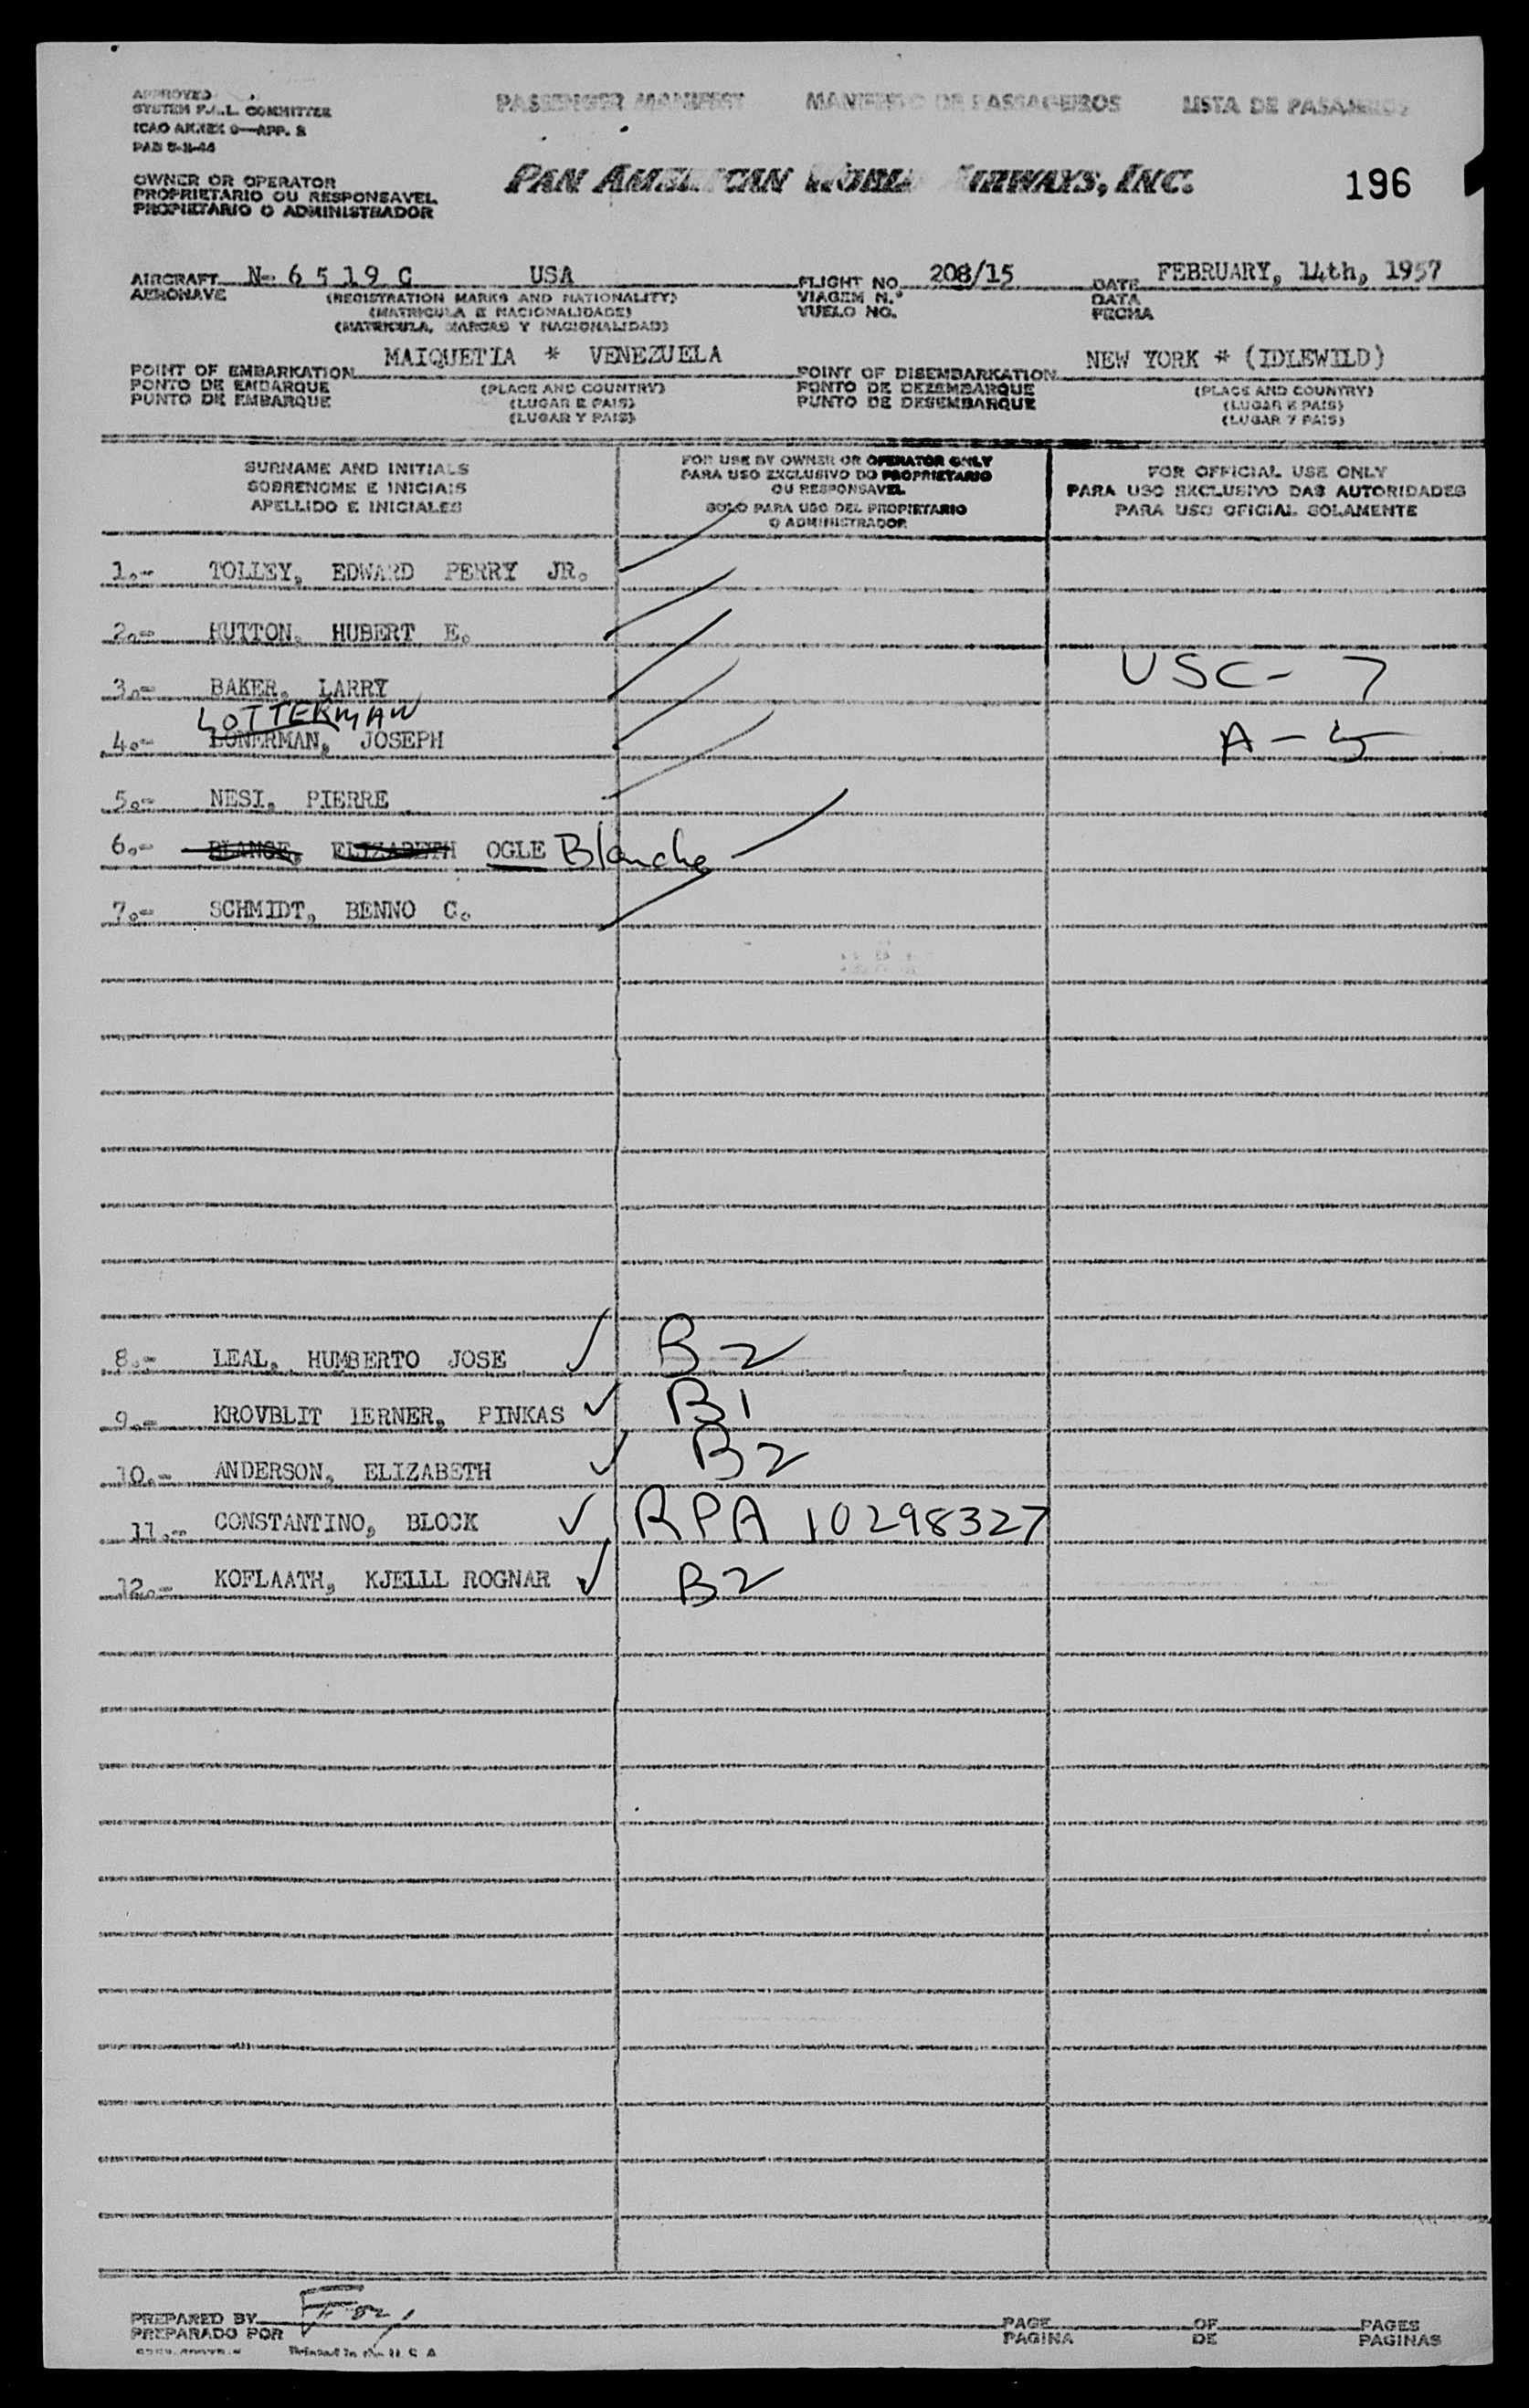 APPROVED
SYSTEM F.A.L. COMMITTEE
ICAO ANNEX 9—APP. 2
PASSENGER MANIFEST MANIFESTO DE PASSAGEIROS LISTA DE PASAJEROS
OWNER OR OPERATOR
PROPRIETARIO OU RESPONSAVEL
PROPIETARIO O ADMINISTRADOR
PAN AMERICAN WORLD AIRWAYS, INC.
196
AIRCRAFT N- 6 5 19 C USA FLIGHT NO. 208/15 DATE FEBRUARY, 14th, 1957
AERONAVE (REGISTRATION MARKS AND NATIONALITY) VIAGEM N.º DATA
(MATRICULA E NACIONALIDADE) VUELO NO. FECHA
(MATRICULA, MARCAS Y NACIONALIDAD)
POINT OF EMBARKATION MAIQUETIA * VENEZUELA POINT OF DISEMBARKATION NEW YORK * (IDLEWILD)
PONTO DE EMBARQUE (PLACE AND COUNTRY) PONTO DE DEZEMBARQUE (PLACE AND COUNTRY)
PUNTO DE EMBARQUE (LUGAR E PAIS) PUNTO DE DESEMBARQUE (LUGAR E PAIS)
(LUGAR Y PAIS) (LUGAR Y PAIS)
SURNAME AND INITIALS
SOBRENOME E INICIAIS
APELLIDO E INICIALES
FOR USE BY OWNER OR OPERATOR ONLY
PARA USO EXCLUSIVO DO PROPRIETARIO
OU RESPONSAVEL
SOLO PARA USO DEL PROPIETARIO
O ADMINISTRADOR
FOR OFFICIAL USE ONLY
PARA USO EXCLUSIVO DAS AUTORIDADES
PARA USO OFICIAL SOLAMENTE
1.- TOLLEY, EDWARD PERRY JR.
2.- HUTTON, HUBERT E.
3.- BAKER, LARRY USC- 7
LOTTERMAN
4.- LONERMAN, JOSEPH A - 5
5.- NESI, PIERRE
6.- BLANCE, ELIZABETH OGLE Blanche
7.- SCHMIDT, BENNO C.
8.- LEAL, HUMBERTO JOSE B2
9.- KROVBLIT LERNER, PINKAS B1
10.- ANDERSON, ELIZABETH B2
11.- CONSTANTINO, BLOCK RPA 10298327
12.- KOFLAATH, KJELLL ROGNAR B2
PREPARED BY PAGE OF PAGES
PREPARADO POR PAGINA DE PAGINAS
Printed in the U. S. A.